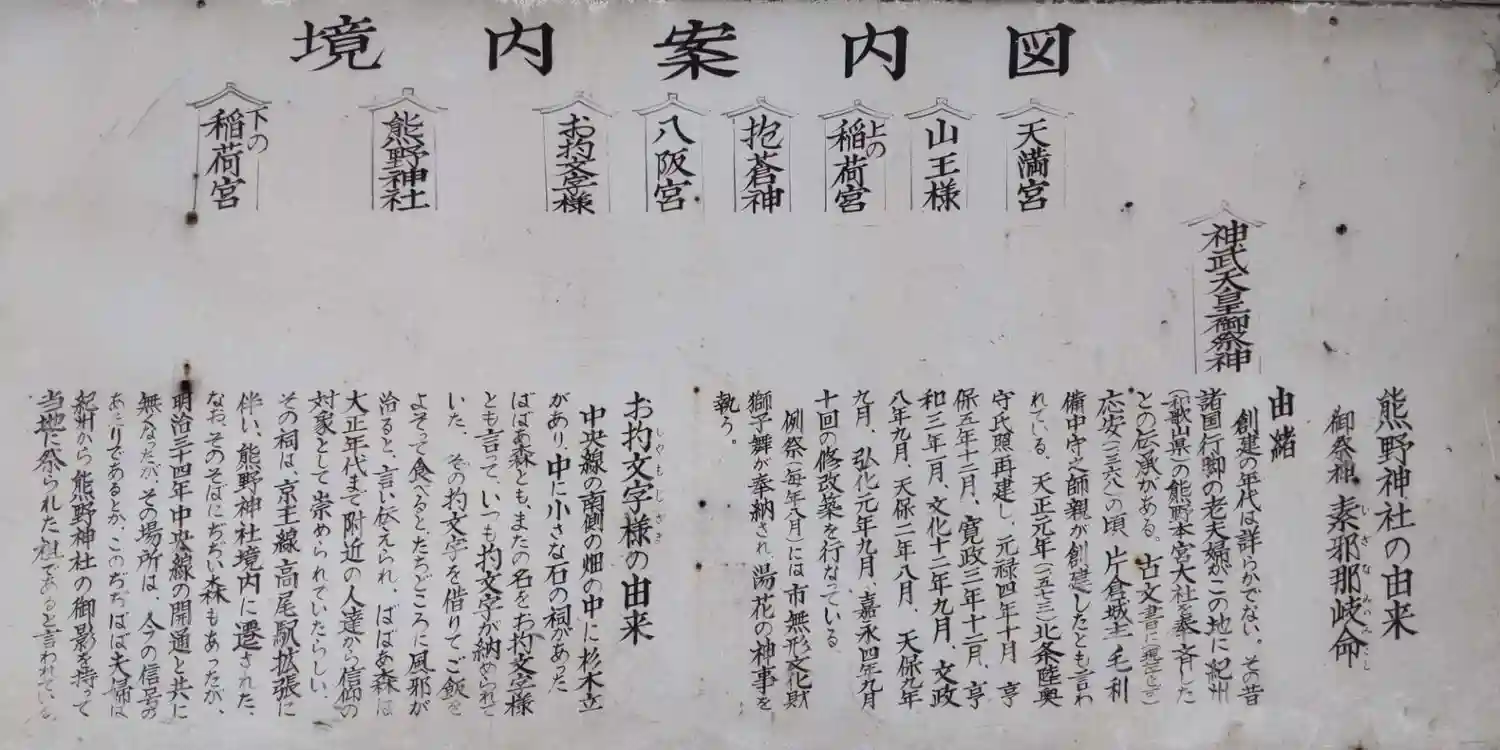 境内案内図
下の
稲荷宮
熊野神社
お杓文字様
八阪宮
抱蒼神
上の
稲荷宮
山王様
天満宮
神武天皇御祭神
熊野神社の由来
御祭神 素邪那岐命
いざなみのみこと
由緒
創建の年代は詳らかでない。その昔
諸国行脚の老夫婦がこの地に紀州
(和歌山県)の熊野本宮大社を奉斉した
との伝承がある。古文書に
応安(一三六八)の頃 片倉城主 毛利
備中守之師親が創建したとも言わ
れている。天正元年(一五七三)北条陸奥
守氏照再建し、元禄四年十月 亨
保五年十二月、寛政三年十二月、亨
和三年一月、文化十二年九月、文政
八年九月、天保二年八月、天保九年
九月、弘化元年九月、嘉永四年九月
十回の修改築を行なっている。
例祭(毎年八月)には市無形文化財
獅子舞が奉納され、湯花の神事を
執う。
お杓文字様の由来
しゃもじさま
中央線の南側の畑の中に杉木立
があり、中に小さな石の祠があった
ばばあ森とも、またの名をお杓文字様
とも言って、いつも杓文字が納められて
いた、その杓文字を借りてご飯を
よそって食べると、たちどころに風邪が
治ると、言い伝えられ、ばばあ森は
大正年代まで附近の人達から信仰の
対家として崇められていたらしい、
その祠は、京王線高尾駅拡張に
伴い、熊野神社境内に遷された、
なお、そのそばにぢぢい森もあったが、
明治三十四年中央線の開通と共に
無くなったが、その場所は、今の信号の
あたりであるとか、このぢぢばば夫婦は
紀州から、熊野神社の御影を持って
当地に祭られた祖であると言われている